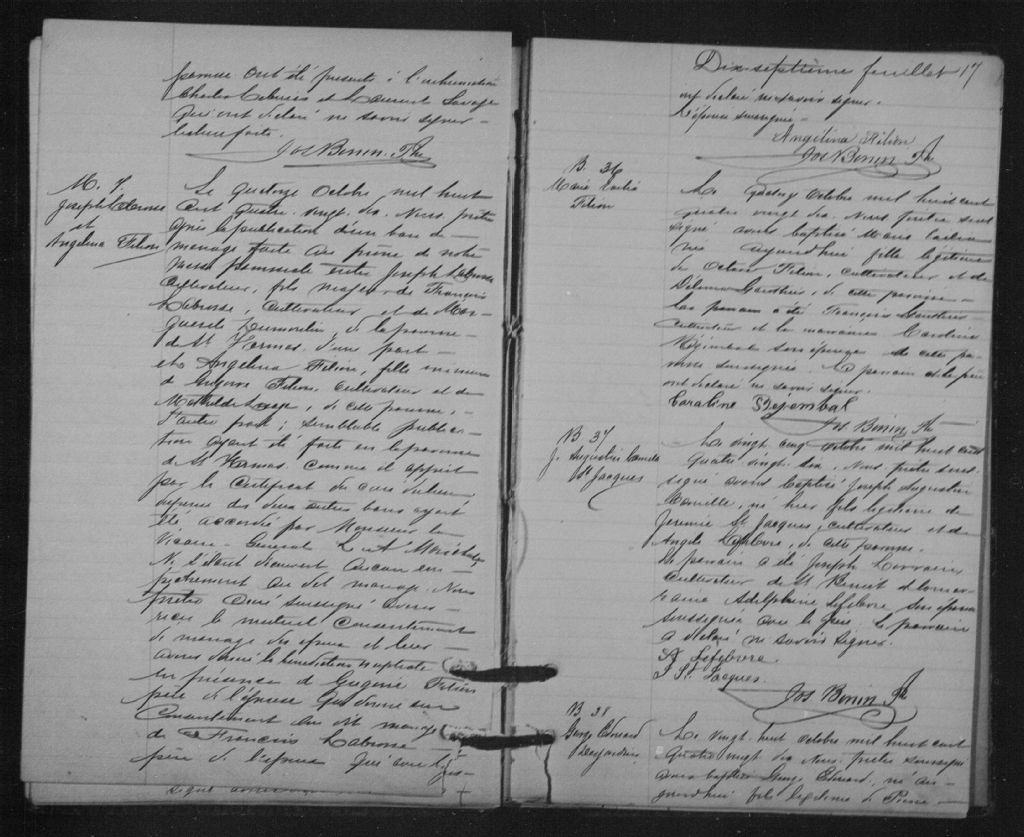 paroisse ont été présents à l'inhumation
Charles et Laurent Sauvage
qui ont déclaré ne savoir signer
lecture faite.
Jos Bonin Ptre
M. 7.
Joseph Labrosse
et
Angelina Filion
Le quatorze Octobre mil huit
cent quatre-vingt-dix. Nous, prêtre
après la publication d'un ban de
mariage faite au prône de notre
messe paroissiale entre Joseph Labrosse
cultivateur, fils majeur de François
Labrosse, cultivateur et de Marguerite
de la paroisse
de St Hermas d'une part
et Angelina Filion, fille mineure
de Grégoire Filion, cultivateur et de
Mathilde de cette paroisse,
d'autre part; semblable publication
ayant été faite en la paroisse
de St Hermas comme il appert
par le certificat du curé du lieu
dispense des deux autres bans ayant
été accordée par Monsieur le
Vicaire-Général L. A. Maréchal,
N. s'étant découvert aucun empêchement
au dit mariage. Nous
prêtre curé soussigné avons
reçu le mutuel consentement
de mariage des époux et leur
avons donné la bénédiction nuptiale
en présence de Grégoire Filion
père de l'épouse qui donne son
consentement au dit mariage
de François Labrosse
père de l'époux qui ont
Dix septième feuillet 17
ont déclaré ne savoir signer.
L'épouse soussignée
Angélina Filion
Jos Bonin Ptre
B. 36
Marie
Filion
Le quatorze Octobre mil huit cent
quatre vingt dix. Nous prêtre soussigné
avons baptisé Marie
née aujourd'hui fille légitime
de Octave Filion, cultivateur et de
Délima Gauthier, de cette paroisse
Le parrain a été François Gauthier
cultivateur et la marraine Caroline
Régimbal son épouse de cette paroisse
soussignée. Le parrain et le père
ont déclaré ne savoir signer.
Caroline Régembal
Jos Bonin Ptre
B 37
J. Augustin Camille
St Jacques
Le vingt cinq octobre mil huit cent
quatre vingt-dix. Nous, prêtre soussigné
avons baptisé Joseph Augustin
Camille, né hier fils légitime de
Jérémie St Jacques, cultivateur et de
Angèle Lefebvre, de cette paroisse.
Le parrain a été Joseph Lorrain
cultivateur de St Benoit et la marraine
Adelphine Lefebvre son épouse
soussignée avec le père. Le parrain
a déclaré ne savoir signer.
A Lefebvre.
J St. Jacques
Jos Bonin Ptre
B 38
George Edouard
Desjardins
Le vingt-huit octobre mil huit cent
quatre vingt dix Nous, prêtre soussigné
avons baptisé George Edouard, né aujourd'hui
fils légitime de Pierre